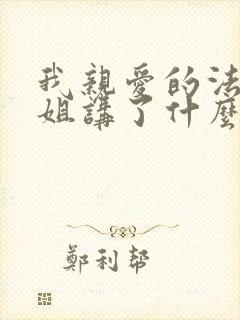 我親愛的法
姐講了什麼
鄭利幫